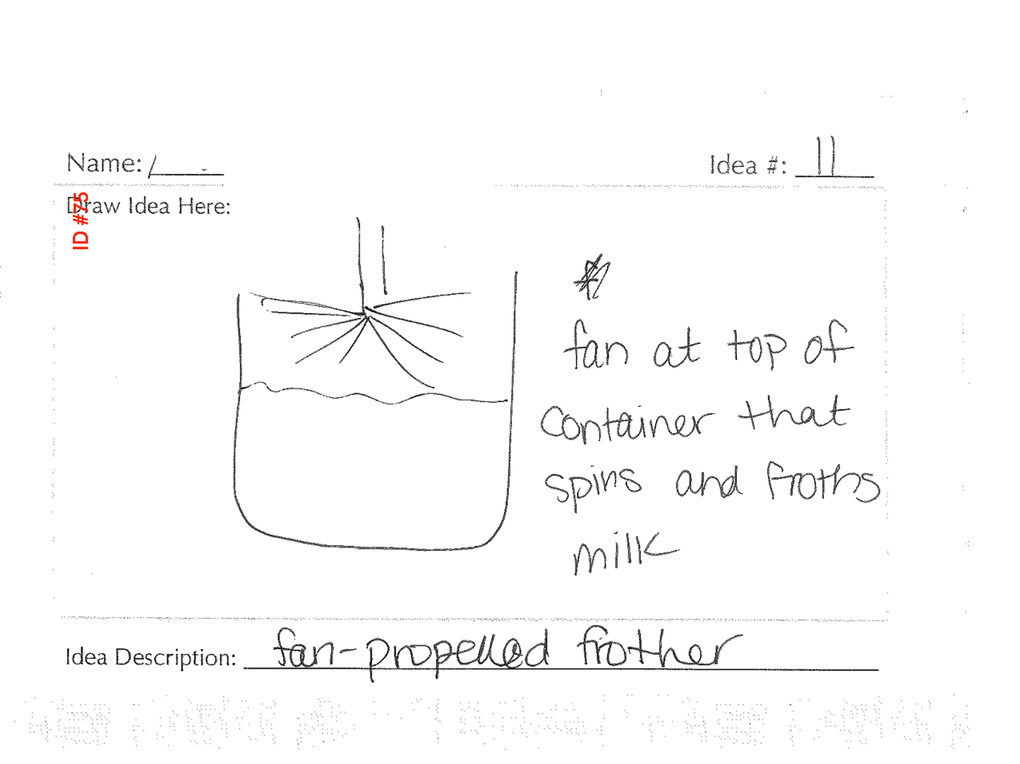 Name:
Idea #: 11
ID #75
Draw Idea Here:
fan at top of
container that
spins and froths
milk
Idea Description: fan-propelled frother